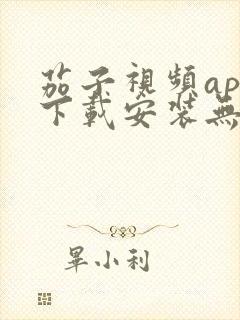 茄子視頻ap
下載安裝無
畢小利